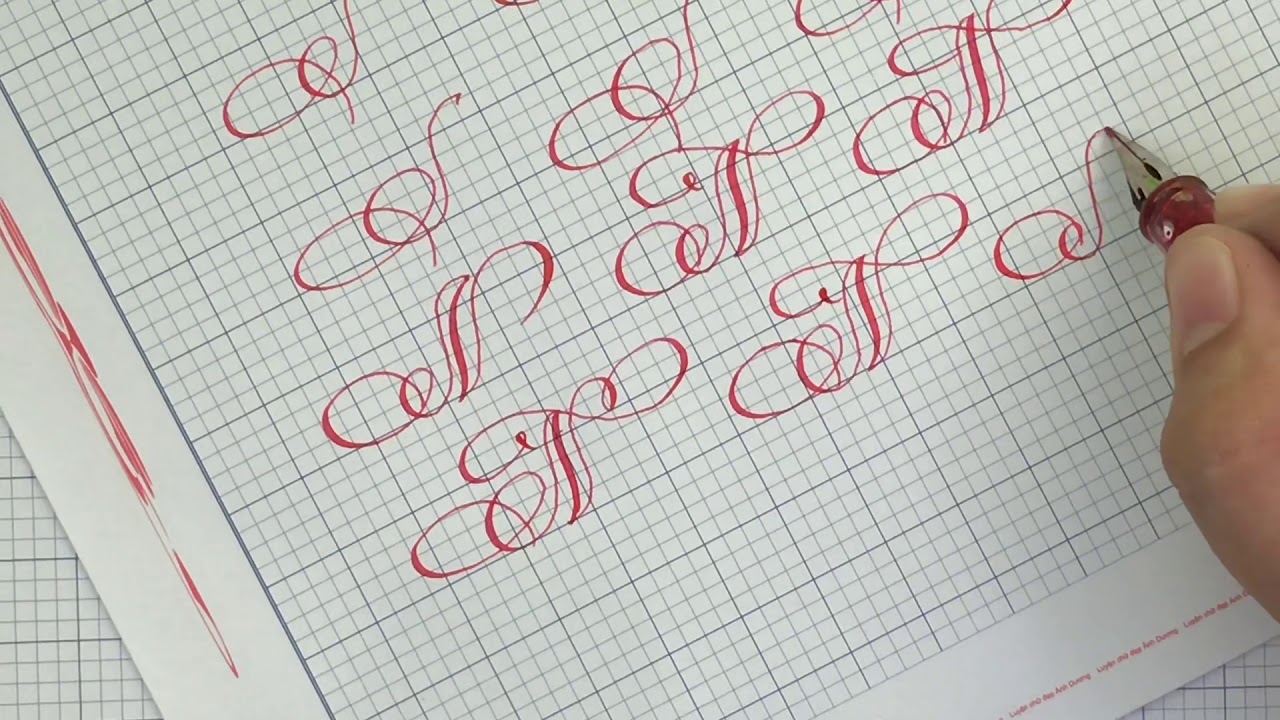 N N N
N N
Luyện chữ đẹp Ánh Dương Luyện chữ đẹp Ánh Dương Luyện chữ đẹp Ánh